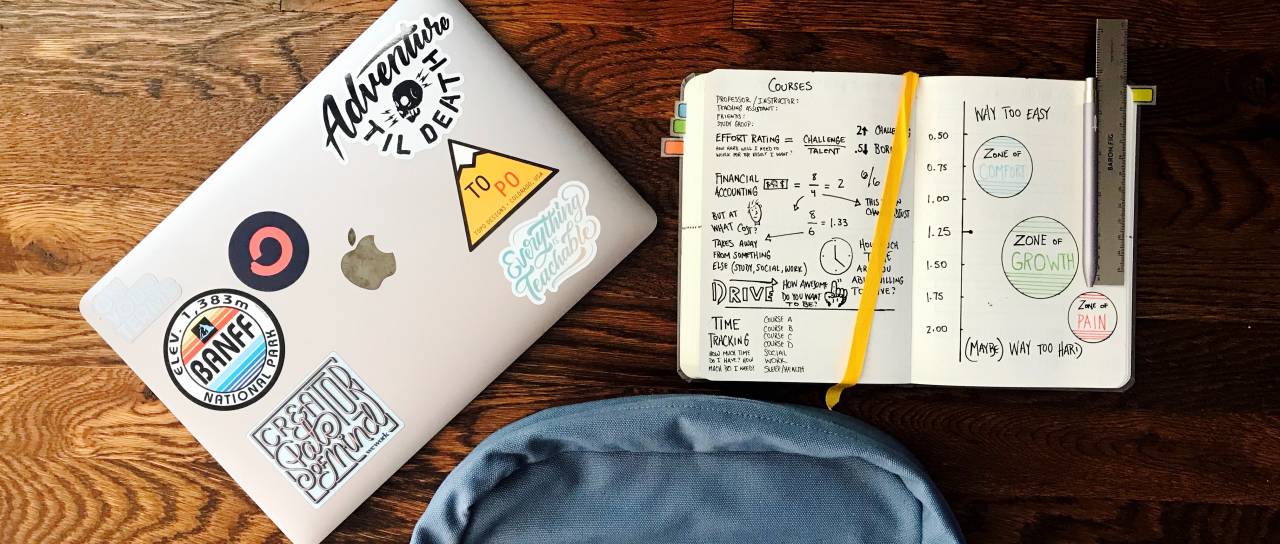 Adventure
'TIL DEATH
TO PO
TOPO DESIGNS • COLORADO, USA
Everything
is
Teachable
ELEV. 1,383m
BANFF
NATIONAL PARK
CREATOR
State
of Mind
wework
COURSES
PROFESSOR / INSTRUCTOR:
TEACHING ASSISTANT:
FRIENDS:
STUDY GROUP:
EFFORT RATING = CHALLENGE
TALENT
HOW HARD WILL I NEED TO
WORK FOR THE RESULT I WANT?
FINANCIAL
ACCOUNTING = 8
4 = 2
6/6
THIS
BUT AT
WHAT COST?
8
6 = 1.33
TAKES AWAY
FROM SOMETHING
ELSE (STUDY, SOCIAL, WORK)
HOW MUCH
ARE YOU
DRIVE
HOW AWESOME
DO YOU WANT
TO BE?
TIME
TRACKING
HOW MUCH TIME
DO I HAVE? HOW
MUCH DO I NEED?
COURSE A
COURSE B
COURSE C
COURSE D
SOCIAL
WORK
SLEEP/HEALTH
WAY TOO EASY
0.50
0.75
1.00
1.25
1.50
1.75
2.00
ZONE OF
COMFORT
ZONE OF
GROWTH
ZONE OF
PAIN
(MAYBE) WAY TOO HARD
BARON FIG